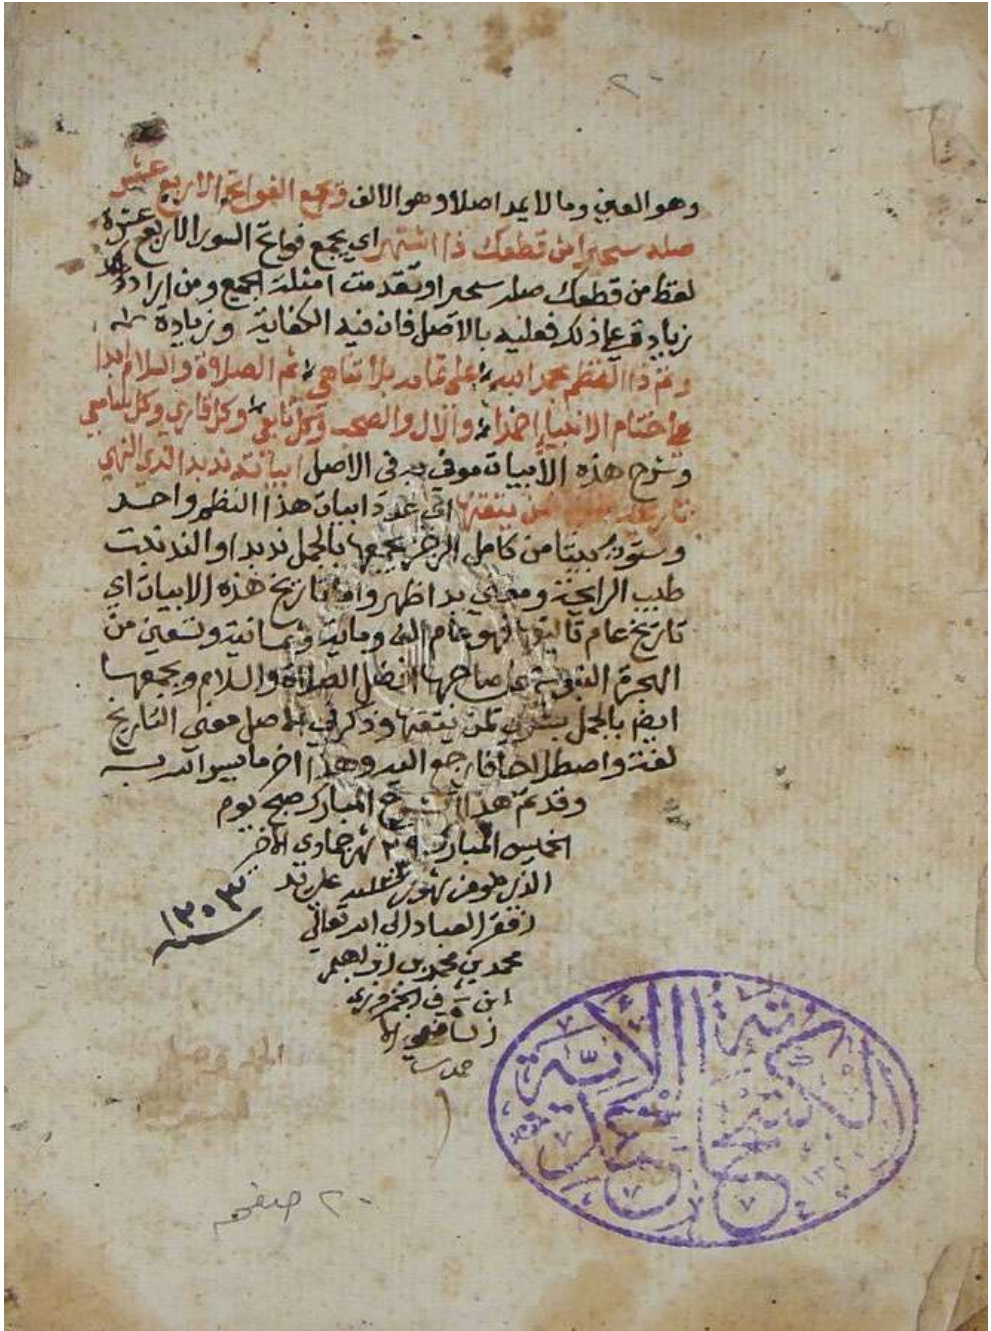 ٢٠
وهو العين وما لا يمد اصلا وهو الالف ويجمع الفواتح الاربع عشر
صله سحيرا من قطعك ذا اشتهر اي يجمع فواتح السور الاربع عشرة
لفظ من قطعك صله سحيرا وتقدمت امثلة الجميع ومن اراد
زيادة على ذلك فعليه بالاصل فان فيه الكفاية وزيادة
وتم ذا النظم بحمد الله على تمامه بلا تناهي ثم الصلاة والسلام ابدا
على ختام الانبياء احمدا والال والصحب وكل تابع وكل قاري وكل سامع
وشرح هذه الابيات موفى به فى الاصل ابياته ند بدا لذي النهى
تاريخه لمن يتقنها اي عدد ابيات هذا النظم واحد
وستون بيتا من كامل الرجز يجمعها بالجمل ند بدا والند نبت
طيب الرايحة ومعنى بدا ظهر واما تاريخ هذه الابيات اي
تاريخ عام تاليفها فهو عام الف وماية وثمانية وتسعين من
الهجرة النبوية على صاحبها افضل الصلاة والسلام ويجمعها
ايضا بالجمل بشرى لمن يتقنها وذكر في الاصل معنى التاريخ
لغة واصطلاحا فارجع اليه وهذا اخر ما يسر الله به
وقد تم هذا الشرح المبارك صبح يوم
الخميس المبارك ٢٩ شهر جمادى الاخر
الذي هو من شهور سنة على يد
افقر العباد الى الله تعالى
١٣٠٣
سنه
محمد بن محمد بن ابراهيم
ابن
٢٠ صفحه